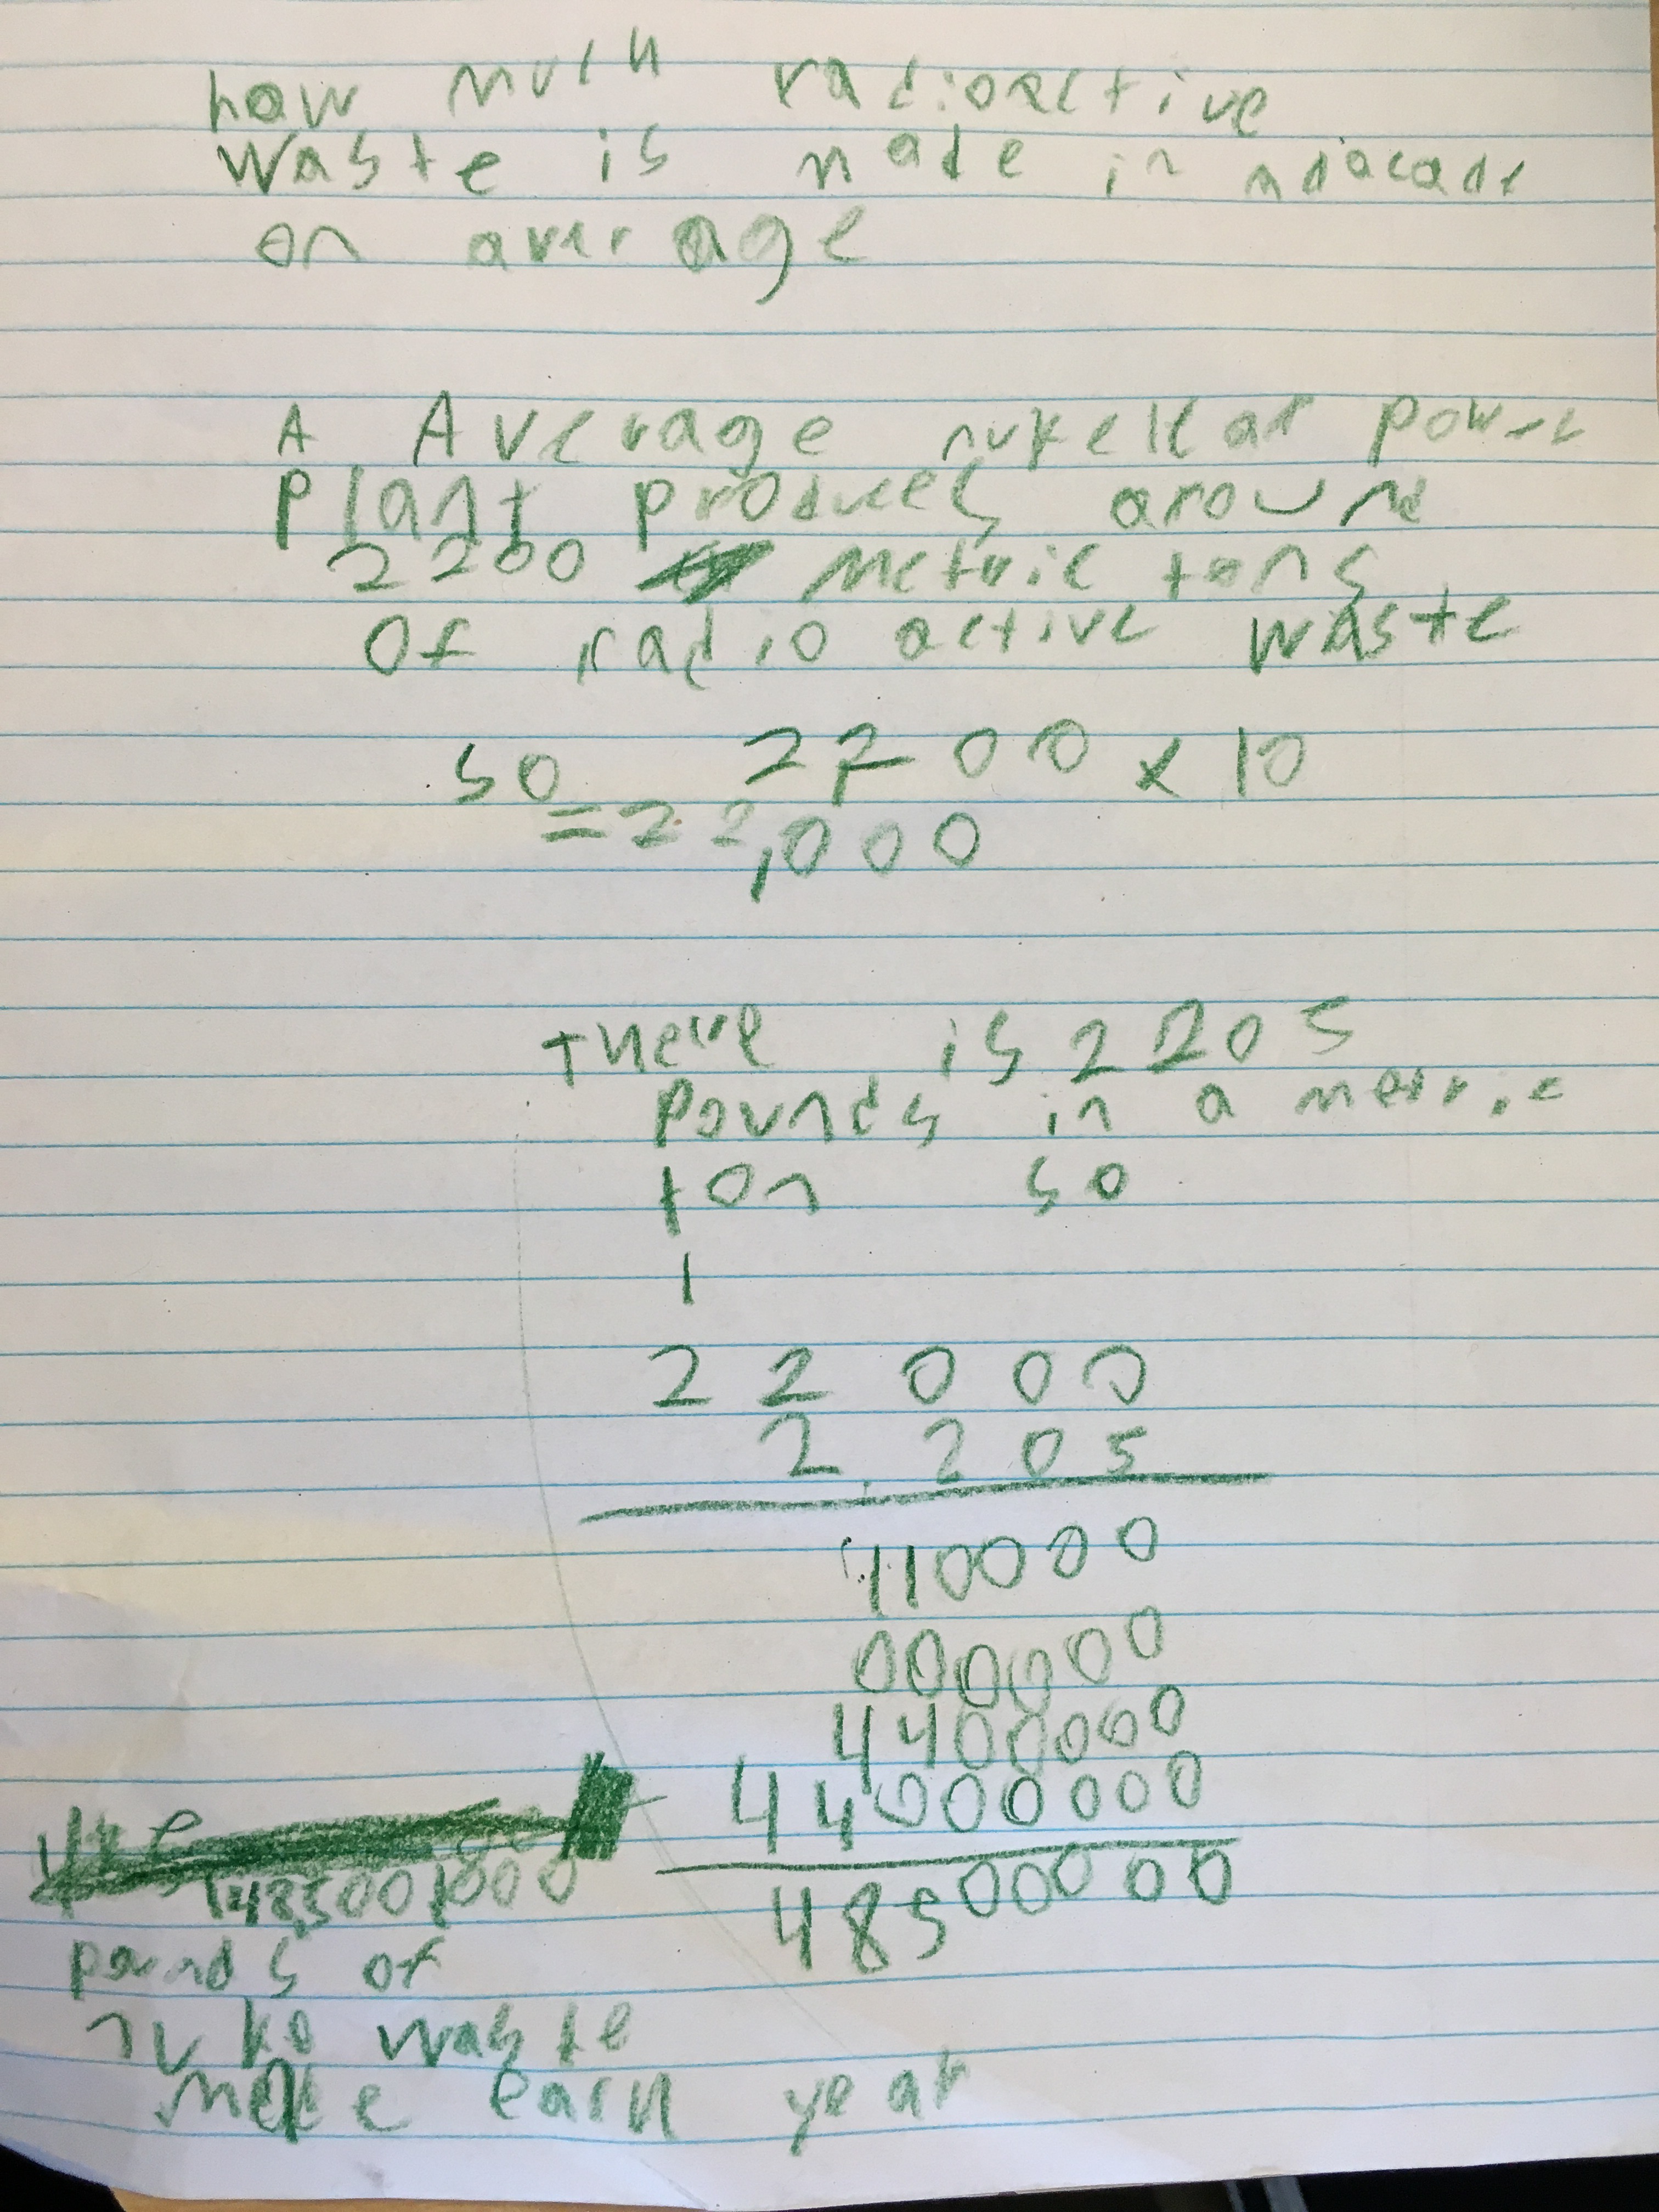 how much radioactive
waste is made in a dacade
on average
A Average nukelear power
plant produces around
2200 metric tons
of radio active waste
so 2200 x 10
= 22,000
there is 2205
pounds in a metric
ton so
1
22000
2.205
110000
000000
4400000
44000000
48500000
48,500,000
pounds of
nuke waste
made each year